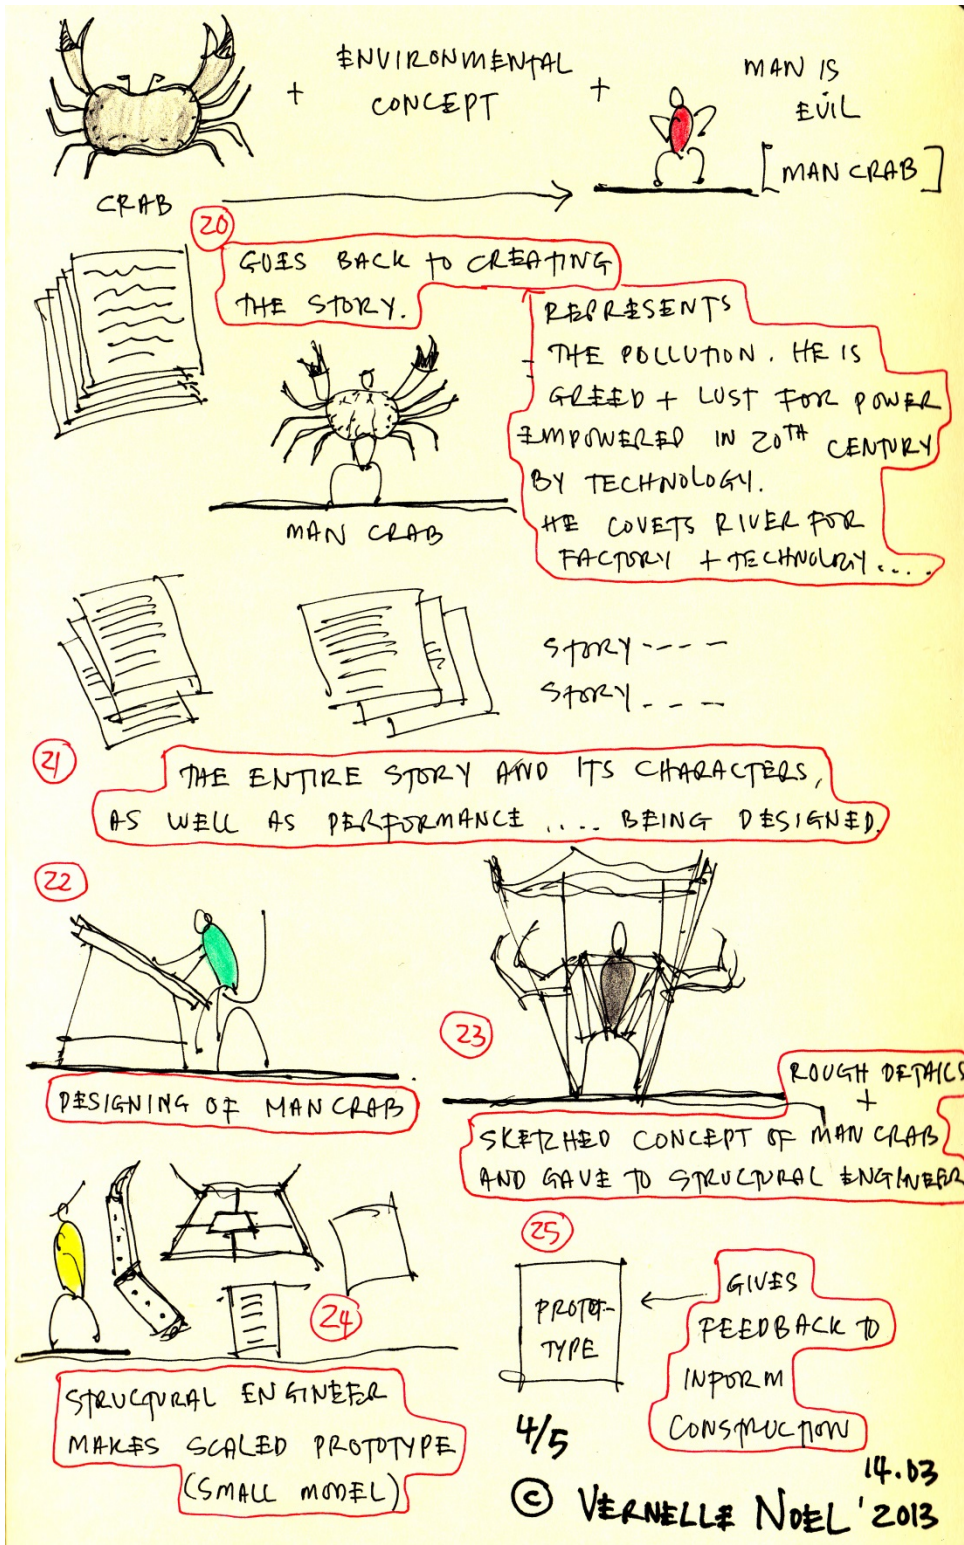 ENVIRONMENTAL
CONCEPT
+
+
MAN IS
EVIL
[MAN CRAB]
CRAB
20
GOES BACK TO CREATING
THE STORY.
REPRESENTS
THE POLLUTION. HE IS
GREED + LUST FOR POWER
EMPOWERED IN 20TH CENTURY
BY TECHNOLOGY.
HE COVETS RIVER FOR
FACTORY + TECHNOLOGY....
MAN CRAB
STORY ----
STORY ---
21
THE ENTIRE STORY AND ITS CHARACTERS,
AS WELL AS PERFORMANCE .... BEING DESIGNED.
22
DESIGNING OF MAN CRAB
23
ROUGH DETAILS
+
SKETCHED CONCEPT OF MAN CRAB
AND GAVE TO STRUCTURAL ENGINEER
24
STRUCTURAL ENGINEER
MAKES SCALED PROTOTYPE
(SMALL MODEL)
25
PROTOT-
TYPE
GIVES
FEEDBACK TO
INFORM
CONSTRUCTION
4/5
14.03
© VERNELLE NOEL '2013